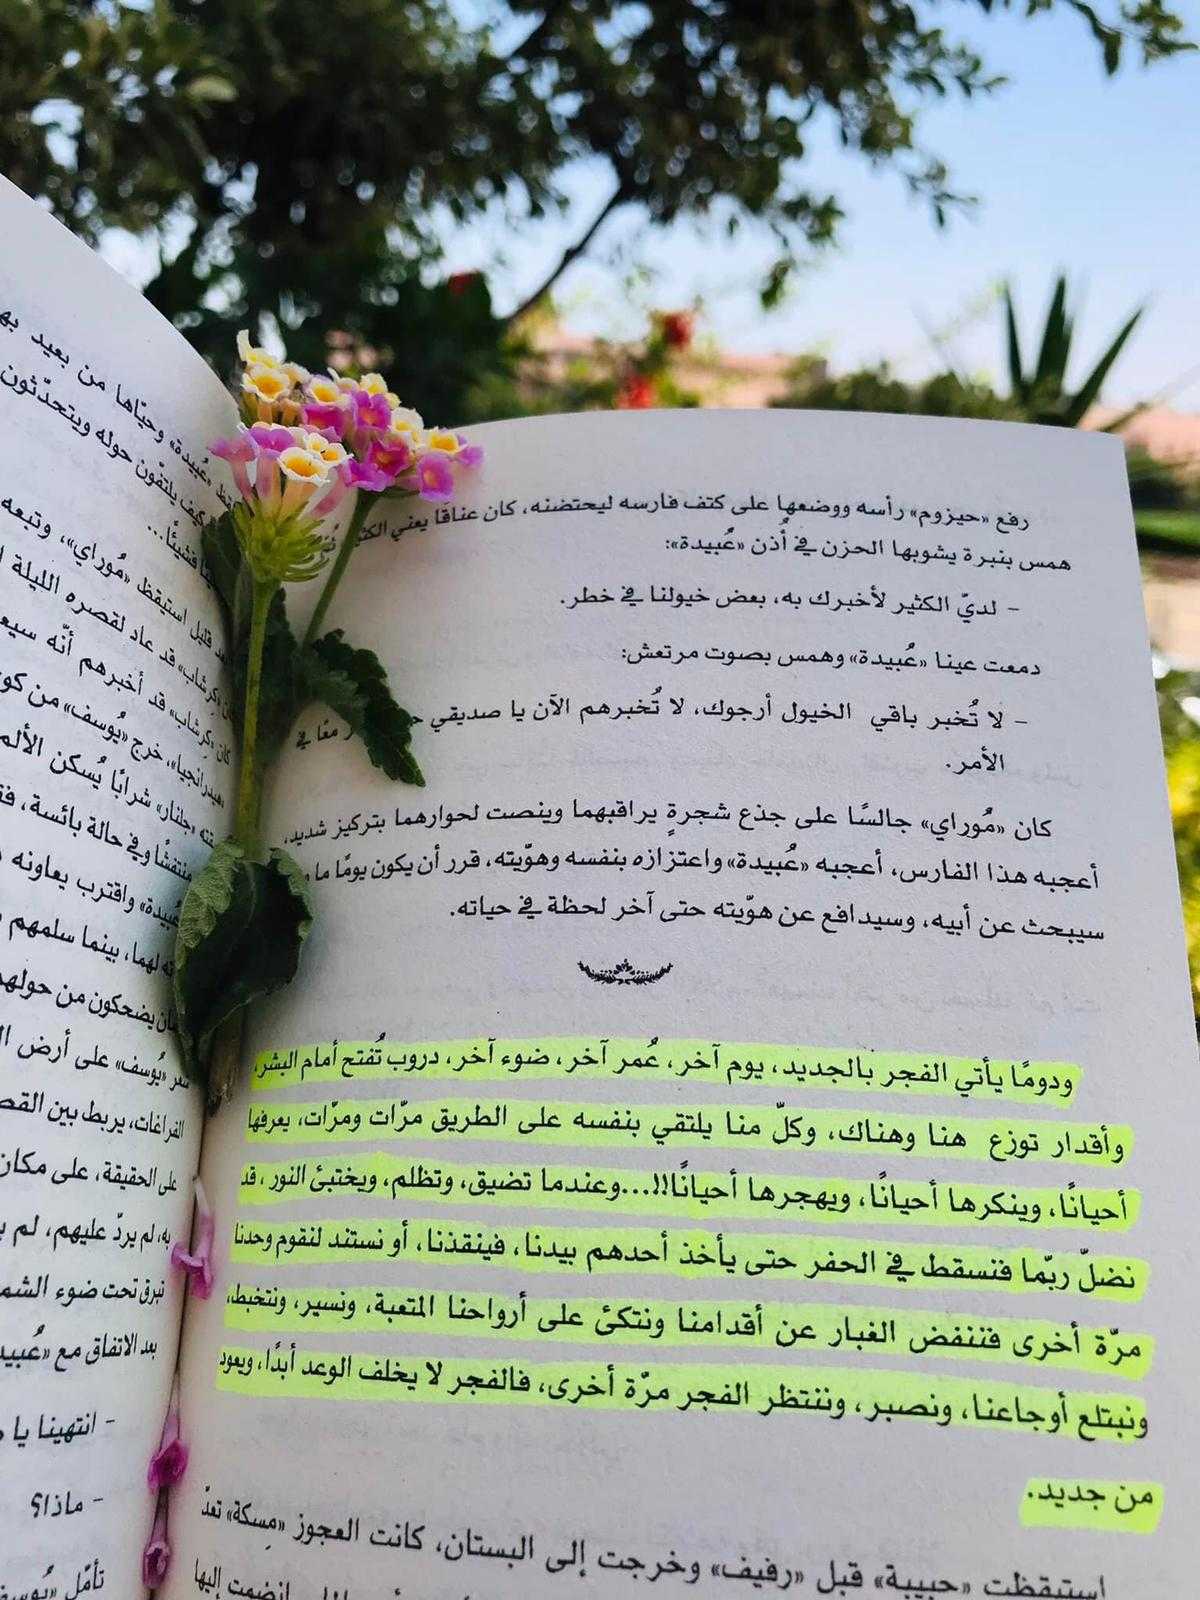 رفع «حيزوم» رأسه ووضعها على كتف فارسه ليحتضنه، كان عناقا يعني الكثير
همس بنبرة يشوبها الحزن في أُذن «عُبيدة»:
- لديّ الكثير لأخبرك به، بعض خيولنا في خطر.
دمعت عينا «عُبيدة» وهمس بصوت مرتعش:
- لا تُخبر باقي الخيول أرجوك، لا تُخبرهم الآن يا صديقي معًا في
الأمر.
كان «مُوراي» جالسًا على جذع شجرةٍ يراقبهما وينصت لحوارهما بتركيز شديد،
أعجبه هذا الفارس، أعجبه «عُبيدة» واعتزازه بنفسه وهوّيته، قرر أن يكون يومًا ما
سيبحث عن أبيه، وسيدافع عن هوّيته حتى آخر لحظة في حياته.
ودومًا يأتي الفجر بالجديد، يوم آخر، عُمر آخر، ضوء آخر، دروب تُفتح أمام البشر،
وأقدار توزع هنا وهناك، وكلّ منا يلتقي بنفسه على الطريق مرّات ومرّات، يعرفها
أحيانًا، وينكرها أحيانًا، ويهجرها أحيانًا!!...وعندما تضيق، وتظلم، ويختبئ النور، قد
نضلّ ربّما فنسقط في الحفر حتى يأخذ أحدهم بيدنا، فينقذنا، أو نستند لنقوم وحدنا
مرّة أخرى فننفض الغبار عن أقدامنا ونتكئ على أرواحنا المتعبة، ونسير، ونتخبط،
ونبتلع أوجاعنا، ونصبر، وننتظر الفجر مرّة أخرى، فالفجر لا يخلف الوعد أبدًا، ويعود
من جديد.
استيقظت «حبيبة» قبل «رفيف» وخرجت إلى البستان، كانت العجوز «مِسكة» تعدّ
انضمت إليها
«عُبيدة» وحيّاها من بعيد
كيف يلتفّون حوله ويتحدّثون
فشيئًا...
قليل استيقظ «مُوراي»، وتبعه
«كِرشاب» قد عاد لقصره الليلة
كان «كِرشاب» قد أخبرهم أنّه
«هيدرانجيا»، خرج «يُوسف» من
«جلنار» شرابًا يُسكن
منتفشًا وفي حالة بائسة،
عُبيدة» واقترب يعاونه
لهما، بينما سلمهم
يضحكون من
«يُوسف» على أرض
الفراغات، يربط بين
على الحقيقة، على مكان
به، لم يردّ عليهم، لم
تبرق تحت ضوء
بعد الاتفاق مع
- انتهينا يا
- ماذا؟
تأمّل